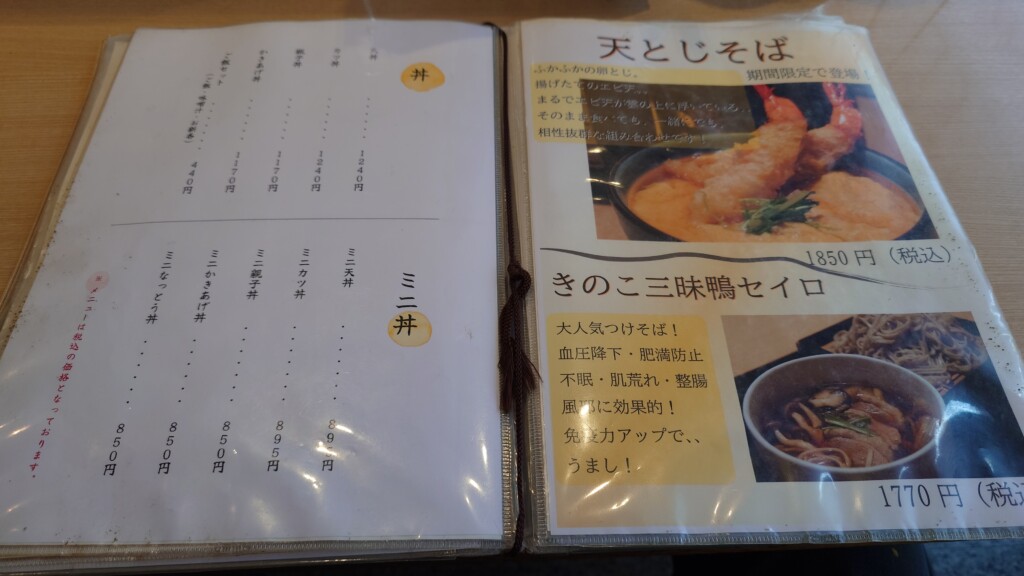 丼
天丼 ・・・・・・ 1240円
カツ丼 ・・・・・・ 1240円
親子丼 ・・・・・・ 1170円
かきあげ丼 ・・・・・・ 1170円
ご飯セット ・・・・・・ 440円
ミニ丼
ミニ天丼 ・・・・・・ 895円
ミニカツ丼 ・・・・・・ 895円
ミニ親子丼 ・・・・・・ 850円
ミニかきあげ丼 ・・・・・・ 850円
ミニなっとう丼 ・・・・・・ 850円
メニューは税込の価格となっております。
天とじそば
期間限定で登場!
ふかふかの卵とじ。
揚げたてのエビ天…
まるでエビ天が雲の上に浮いている。
そのまま食べても、一緒でも。
相性抜群な組み合わせです!
1850円(税込)
きのこ三昧鴨セイロ
大人気つけそば!
血圧降下・肥満防止
不眠・肌荒れ・整腸
風邪に効果的!
免疫力アップで、、
うまし!
1770円(税込